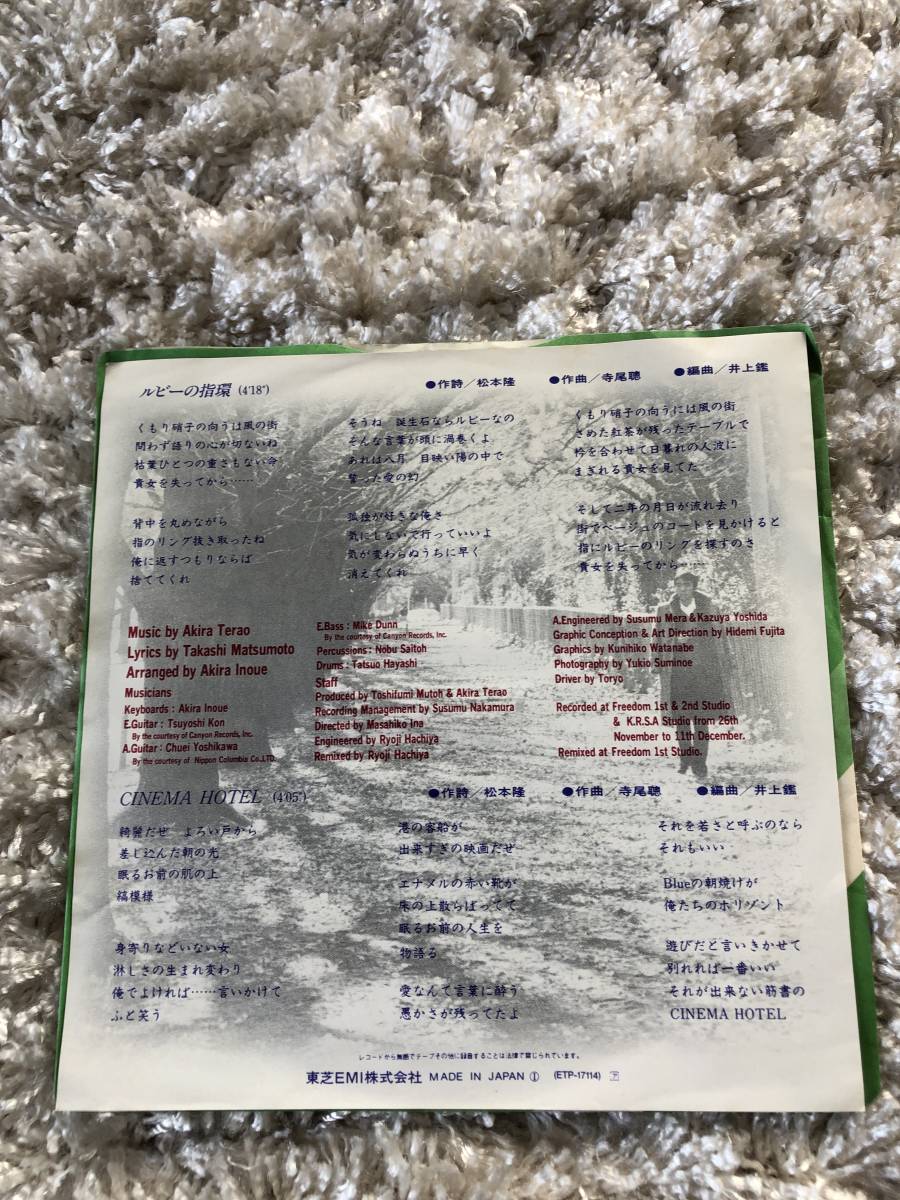 ルビーの指環 (4'18")
●作詩／松本隆 ●作曲／寺尾聰 ●編曲／井上鑑
くもり硝子の向うは風の街
問わず語りの心が切ないね
枯葉ひとつの重さもない命
貴女を失ってから……
背中を丸めながら
指のリング抜き取ったね
俺に返すつもりならば
捨ててくれ
そうね 誕生石ならルビーなの
そんな言葉が頭に渦巻くよ
あれは八月 目映い陽の中で
誓った愛の幻
孤独が好きな俺さ
気にしないで行っていいよ
気が変わらぬうちに早く
消えてくれ
くもり硝子の向うには風の街
さめた紅茶が残ったテーブルで
衿を合わせて日暮れの人波に
まぎれる貴女を見てた
そして二年の月日が流れ去り
街でベージュのコートを見かけると
指にルビーのリングを探すのさ
貴女を失ってから……
Music by Akira Terao
Lyrics by Takashi Matsumoto
Arranged by Akira Inoue
Musicians
Keyboards : Akira Inoue
E.Guitar : Tsuyoshi Kon
By the courtesy of Canyon Records, Inc.
A.Guitar : Chuei Yoshikawa
By the courtesy of Nippon Columbia Co.,LTD.
E.Bass : Mike Dunn
By the courtesy of Canyon Records, Inc.
Percussions : Nobu Saitoh
Drums : Tatsuo Hayashi
Staff
Produced by Toshifumi Mutoh & Akira Terao
Recording Management by Susumu Nakamura
Directed by Masahiko Ina
Engineered by Ryoji Hachiya
Remixed by Ryoji Hachiya
A.Engineered by Susumu Mera & Kazuya Yoshida
Graphic Conception & Art Direction by Hidemi Fujita
Graphics by Kunihiko Watanabe
Photography by Yukio Suminoe
Driver by Toryo
Recorded at Freedom 1st & 2nd Studio
& K.R.S.A Studio from 26th
November to 11th December.
Remixed at Freedom 1st Studio.
CINEMA HOTEL (4'05")
●作詩／松本隆 ●作曲／寺尾聰 ●編曲／井上鑑
綺麗だぜ よろい戸から
差し込んだ朝の光
眠るお前の肌の上
縞模様
身寄りなどいない女
淋しさの生まれ変わり
俺でよければ……言いかけて
ふと笑う
港の客船が
出来すぎの映画だぜ
エナメルの赤い靴が
床の上散らばってて
眠るお前の人生を
物語る
愛なんて言葉に酔う
愚かさが残ってたよ
それを若さと呼ぶのなら
それもいい
Blueの朝焼けが
俺たちのホリゾント
遊びだと言いきかせて
別れれば一番いい
それが出来ない筋書の
CINEMA HOTEL
レコードから無断でテープその他に録音することは法律で禁じられています。
東芝EMI株式会社 MADE IN JAPAN Ⓘ (ETP-17114) ア